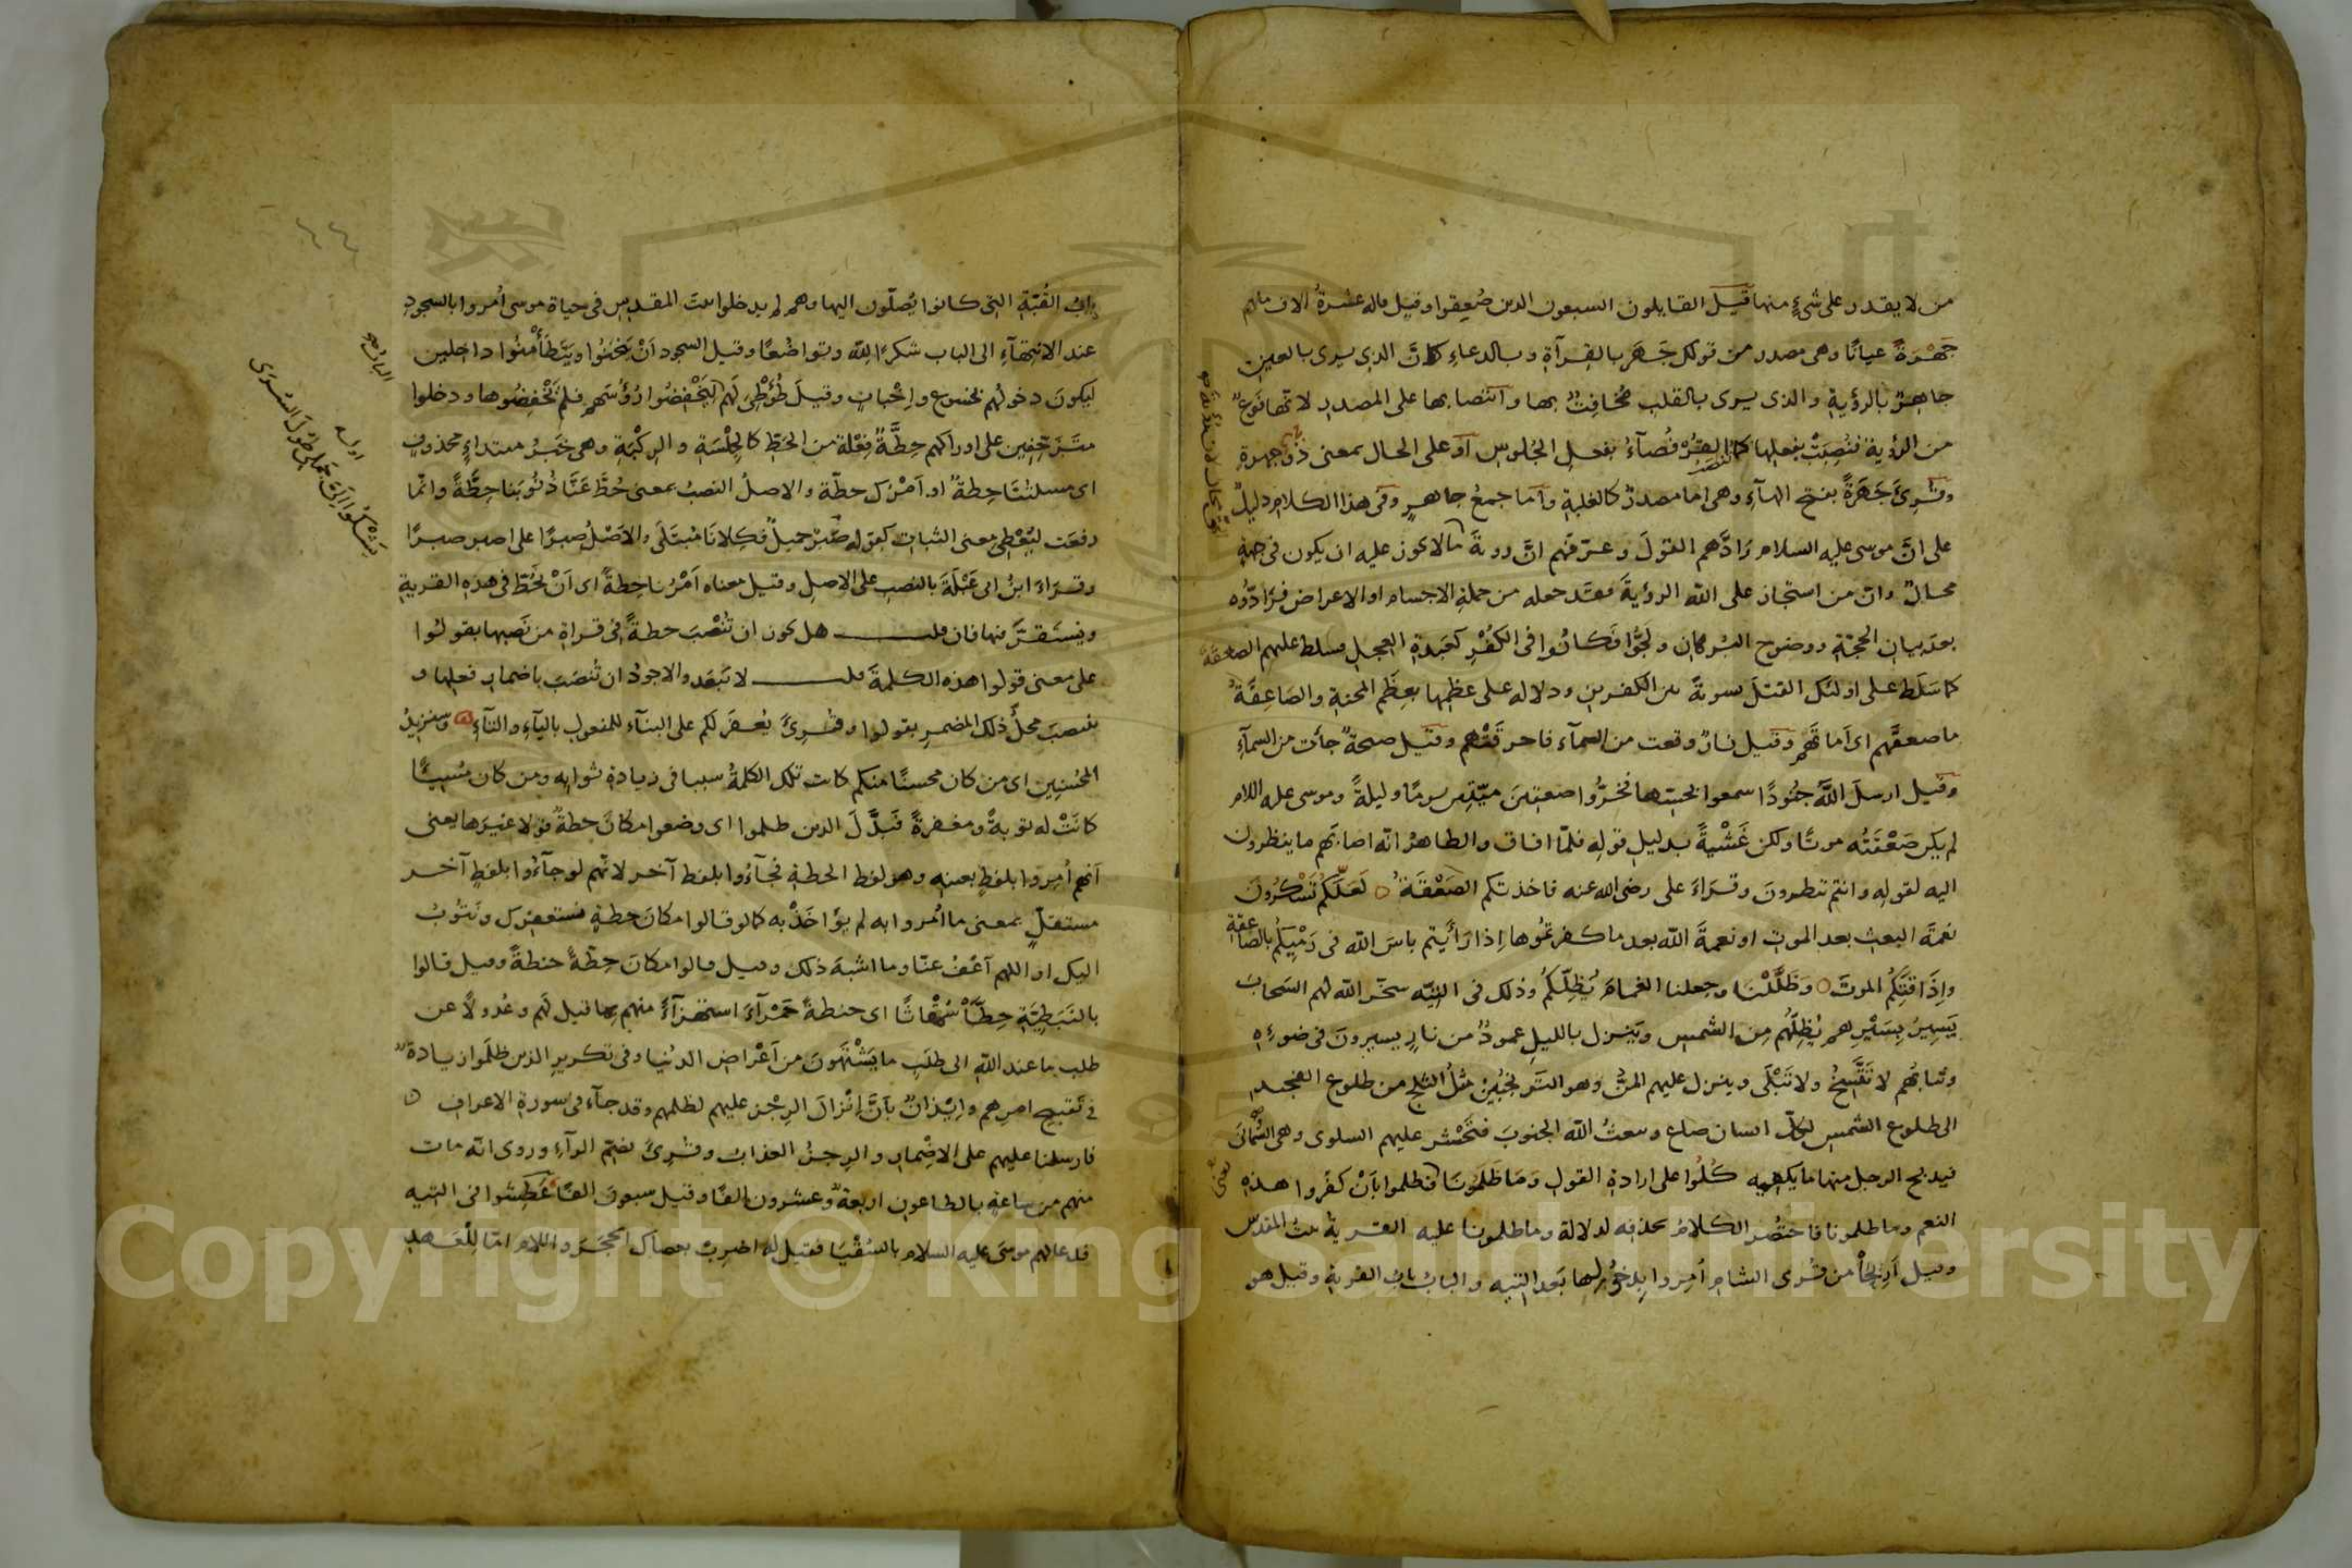 من لا يقدر على شىء منها قيل القايلون السبعون الذين صعقوا وقيل قاله عشرة الاف منهم
جَهْرَةً عيانًا وهى مصدر من قولك جَهَرَ بالقرآة وبالدعاء كانّ الذى يرى بالعين
جاهرٌ بالرؤية والذى يرى بالقلب مُخافِتٌ بها وانتصابها على المصدر لانّها نَوعٌ
من الرؤية فنُصِبَتْ بفعلها كما تنصب القرفُصآءُ بفعل الجُلوس او على الحال بمعنى ذَوى جهرة
وقُرِئَ جَهَرَةً بفتح الهآء وهى اما مصدرٌ كالغلبةِ وامّا جمعُ جاهرٍ وفى هذا الكلام دليلٌ
على انّ موسى عليه السلام رَادَّهم القولَ وعرّفهم انّ رؤيةَ ما لا يجوز عليه ان يكون فى جهةٍ
محالٌ وانّ من استجاز على الله الرؤيةَ فقد جعله من جملةِ الاجسام او الاعراض فرَادّوه
بعد بيان الحجّةِ ووضوح البُرهان ولَجُّوا فكانُوا فى الكُفْرِ كعَبَدةِ العجل فسلط عليهم الصعقةَ
كما سَلّط على اولئك القتلَ تسويةً بين الكفرين ودلالة على عظمها بعِظَم المحنةِ والصَاعِقةُ
ما صعقَهم اى اَماتَهم وقيل نارٌ وقعت من السمآء فاحرقَتْهم وقيل صيحةٌ جآت من السمآء
وقيل ارسلَ اللَّهُ جنُودًا سمعوا بحسّها فخرّوا صعقينَ ميّتين يومًا وليلةً وموسى عليه السلام
لم يكن صَعْقَتُه موتًا ولكن غَشْيَةً بدليل قولِه فلمّا افاق والظاهرُ انّه اصابَهم ما ينظرون
اليه لقوله وانتم تنظرونَ وقرَاءَ على رضى الله عنه فاخذتكم الصَعْقَةُ لَعَلّكُم تَشْكُرُونَ
نعمَةَ البعث بعد الموت او نعمةَ الله بعد ما كفرتمُوها اِذا رَأَيتم باسَ الله فى رَمْيِكُم بالصَّاعِقة
واِذَاقتِكُم الموتَ وَظَلَّلْنَا وجعلنا الغمامَ يُظِلّكُم وذلك فى التِّيه سخّر الله لهم السَحابَ
يَسِيرُ بِسَيْرِهم يُظِلُّهم مِن الشمس ويَنزل بالليل عمودٌ من نارٍ يسيرونَ فى ضوءِه
وثيابُهم لا تَتَّسِخُ ولا تَبْلَى وينزل عليهم المنُّ وهو التَرَنجُبِين مثلُ الثلج من طلوع الفجر
الى طلوع الشمس لكلّ انسان صاع ويبعثُ الله الجنوبَ فتَحْشُر عليهم السلوى وهى السُّمَانَى
فيذبح الرجل منها ما يكفيه كُلُوا على ارادةِ القول وَمَا ظَلَمُونَا فظلموا بَاَنْ كفَروا هذه
النعم وما ظلمونا فاختصُر الكلامُ بحذفِه لدلالة وما ظلمونا عليه القرية بيتُ المقدس
وقيل اَرِيحَا من قُرى الشام اُمِروا بِدخُولها بَعد التيه والبابُ بابُ القرية وقيل هو
بابُ القُبّةِ التى كانوا يُصلّون اليها وهم لم يدخلوا بيتَ المقدس فى حياة موسى اُمروا بالسجود
عند الانتهآءِ الى الباب شكرًا لله وتواضُعًا وقيل السجود اَنْ يَنحَنُوا ويَتَطَأْمَنُوا داخلين
ليكونَ دخولُهم بخشوع واِخباتٍ وقيلَ طُؤْطِئَ لَهم الباب لِيَخْفِضُوا رُؤُسَهم فلم يَخْفِضُوها ودخلوا
متَزَحِّفِين على اوراكهم حِطَّةٌ فِعْلة من الحَطّ كالجِلْسَةِ والرِكْبَةِ وهى خَبَرُ مبتداءٍ محذوفٍ
اى مسئلتُنَا حِطةٌ او اَمْرُك حطّة والاصلُ النصبُ بمعنى حُطَّ عَنَّا ذُنُوبَنا حِطَّةً وانّما
رفعَت ليُعْطِىَ معنى الثبات كقوله صَبرٌ جميلٌ فكِلانَا مُبتَلَى والاَصْلُ صبرًا على اصبر صبرًا
وقرَاءَ ابنُ ابى عَبْلَةَ بالنصب على الاصلِ وقيل معناه اَمْرُنا حِطةٌ اى اَنْ نَحُطّ فى هذه القريةِ
ونستَقرَّ فيها فان قلت هل يجوز ان تُنْصَبَ حطةً فى قراةِ من نَصبها بقولُوا
على معنى قولوا هذه الكلمةَ قلت لا تَبعُد والاجودُ ان تُنصَبَ باضمار فعلها و
ينصبَ محلّ ذلك المضمرِ بقولوا وقُرِئَ يُغفَر لكم على البنآء للمفعول باليآءِ والتآءِ وَسَنَزِيدُ
المُحْسِنِين اى من كان محسنًا منكم كانت تلك الكلمةُ سببا فى زيادةِ ثوابِه ومن كان مُسِيئًا
كانَتْ له توبةً ومغفرةً فَبَدَّلَ الذين ظلموا اى وضعوا مكانَ حطةٌ قولا غيرَها يعنى
اَنهم اُمِروا بلفظٍ بعينِه وهو لفظ الحطةِ فجآءُوا بلفظ آخر لانّهم لو جآءُوا بلفظٍ آخر
مستقلٍّ بمعنى ما اُمروا به لم يؤَاخَذْ به كما لو قالوا مكانَ حطةٍ نستغفِرُك ونَتُوبُ
اليك او اللهم اعْفُ عنّا وما اشبهَ ذلك وقيل قالوا مكانَ حِطّةٌ حنطةً وقيل قالوا
بالنَبَطِيَّةِ حِطَّا سُمْقاثًا اى حنطةً حَمْرآءَ استهزآءً منهم بما قيل لَهم وعُدولًا عن
طلب ما عند اللّه الى طلَبِ ما يَشْتَهُونَ من اَعْراض الدنُيا وفى تكرير الذين ظلَموا زيادةٌ
فى تَقبيح امرِهم واِيْذانٌ بَانّ اِنْزالَ الرِجْز عليهم لظلمهم وقد جآء فى سورة الاعراف
فارسلنا عليهم على الاِضْمار والرِجزُ العذابُ وقُرِئَ بضم الرآءِ ورُوى انّه مات
منهم من ساعةٍ بالطاعون اربعةٌ وعشرون الفًا وقيل سبعونَ الفًا عَطِشُوا فى التيه
فدعا لهم موسى عليه السلام بالسُقْيَا فقيل له اضرِبْ بعصاك الحَجَرَ واللام امّا لِلْعَهد
الباب صح
يَشْكُو اِلَىَّ جَمَلِى طُولَ السُرَى
Copyright © King Saud University